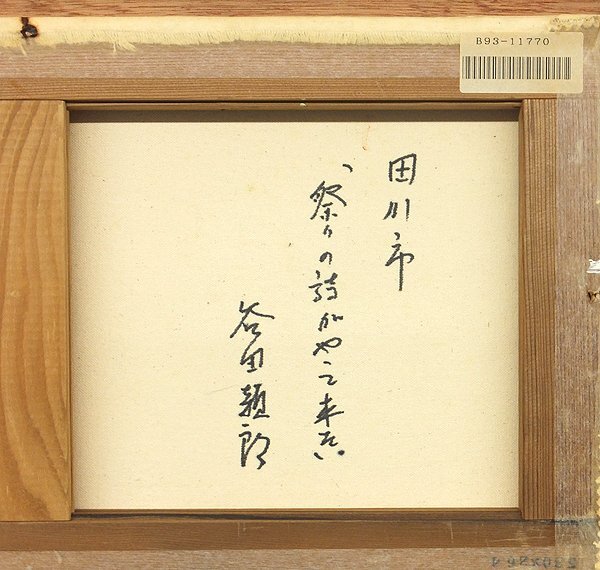 B93-11770
田川市
、祭りの詩がやって来た、
谷田穎郎